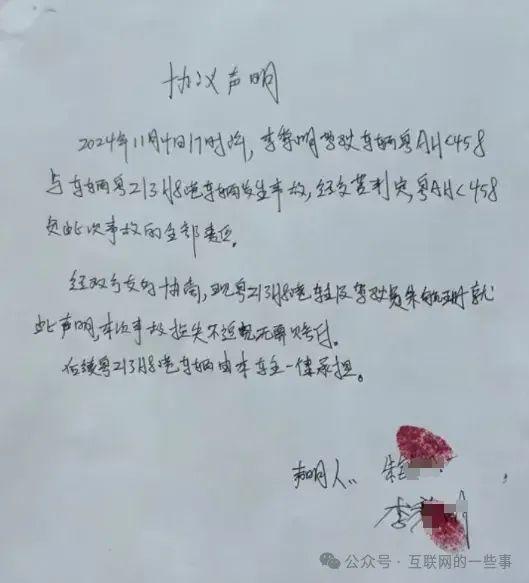 协议声明
2024年11月4日17时许，李黎明驾驶车辆粤AH<458
与车辆粤Z13H8港车辆发生事故，经交警判定，粤AH<458
负此次事故的全部责任。
经双方友好协商，现粤Z13H8港车主及驾驶员朱 就
此声明，本次事故损失不追究无需赔付。
后续粤Z13H8港车辆由本车主一律承担。
声明人：朱
李
公众号 · 互联网的一些事